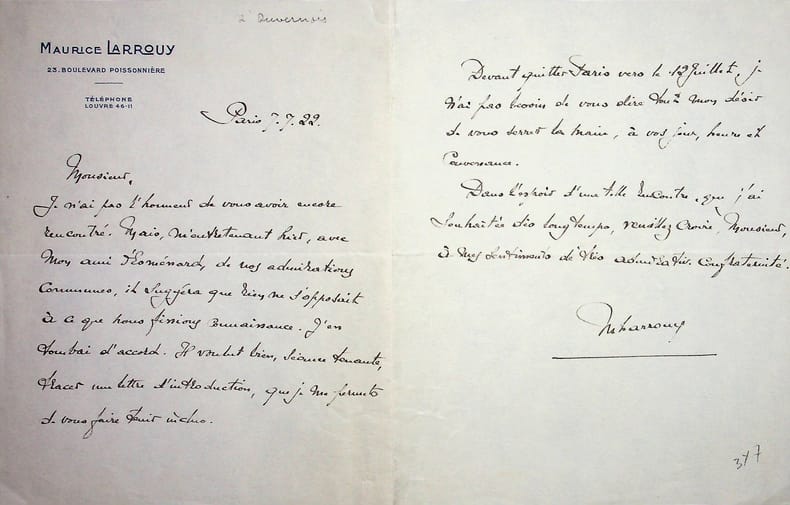 à Duvernois
MAURICE LARROUY
23, BOULEVARD POISSONNIÈRE
TÉLÉPHONE
LOUVRE 46-11
Paris 7.7.22.
Monsieur,
Je n'ai pas l'honneur de vous avoir encore
rencontré. Mais, m'entretenant hier, avec
mon ami d'Esménard, de nos admirations
communes, il suggéra que rien ne s'opposait
à ce que nous fissions connaissance. J'en
tombai d'accord. Il voulut bien, séance tenante,
tracer une lettre d'introduction, que je me permets
de vous faire tenir inclus.
Devant quitter Paris vers le 12 Juillet, je
n'ai pas besoin de vous dire tout mon désir
de vous serrer la main, à vos jour, heure et
convenance.
Dans l'espoir d'une telle rencontre, que j'ai
souhaitée dès longtemps, veuillez croire, Monsieur,
à mes sentiments de très admirative confraternité.
MLarrouy
347